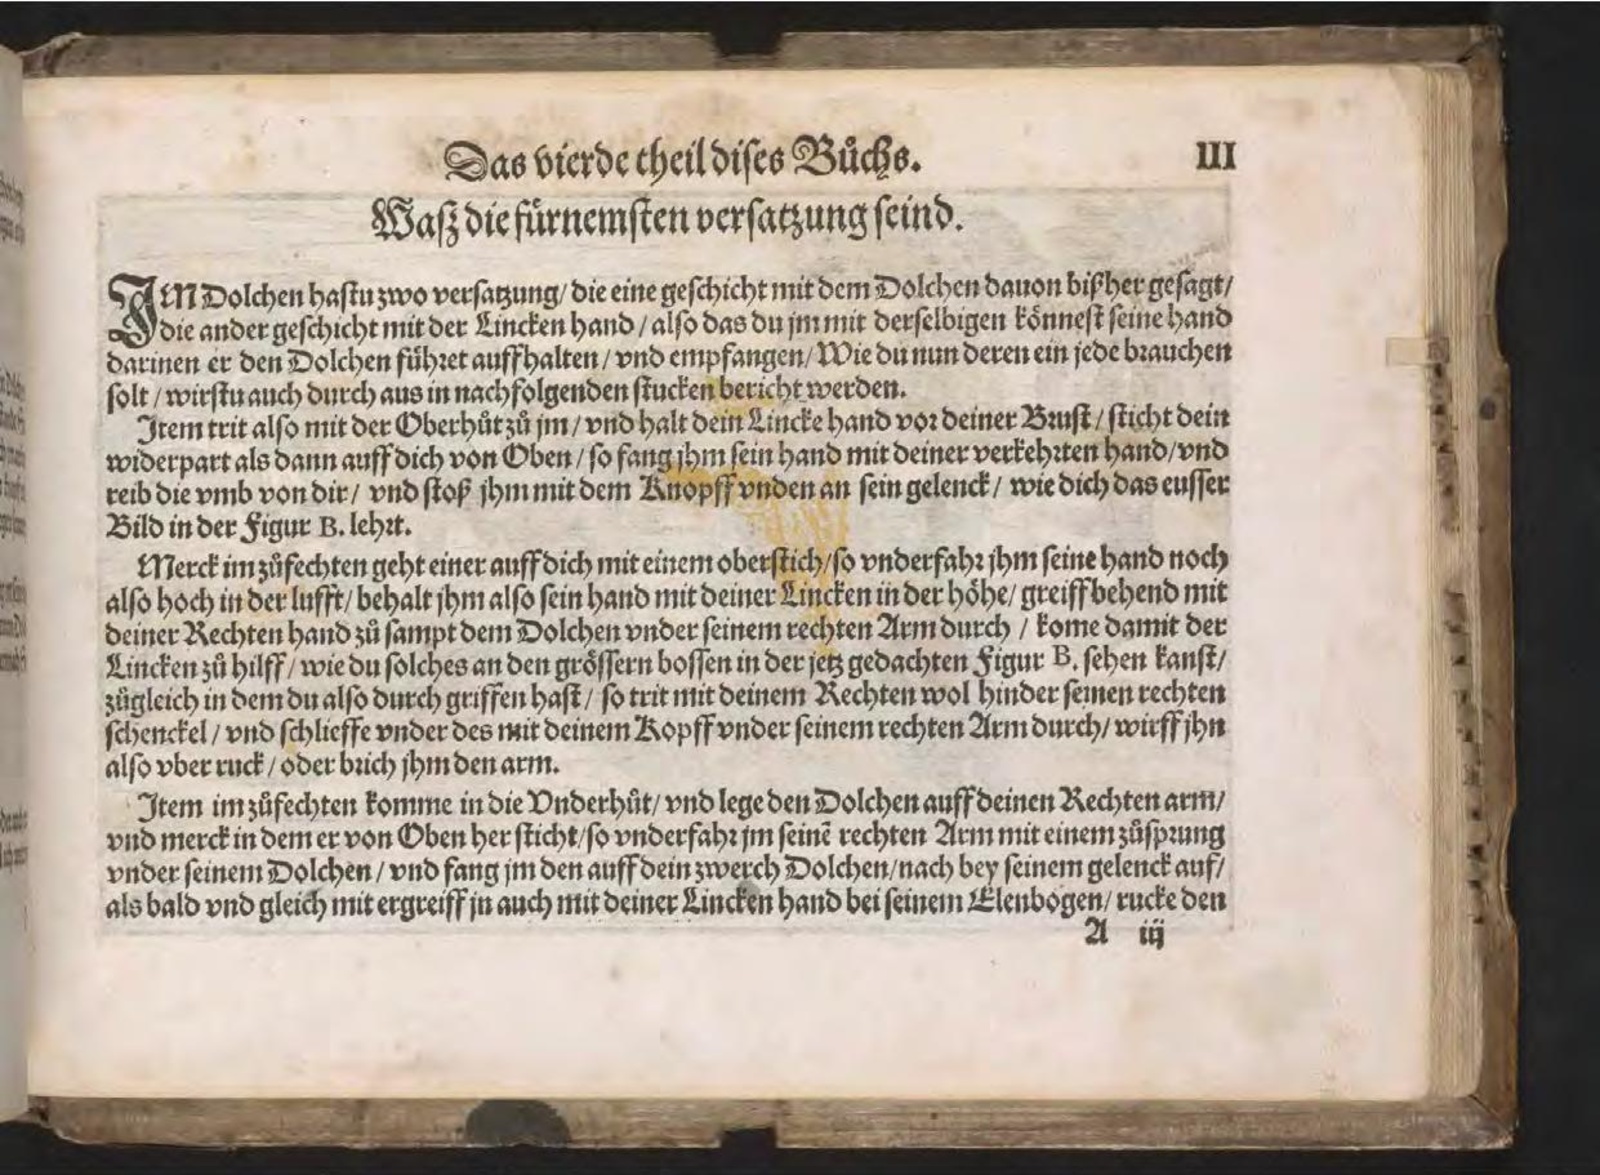 Das vierde theil dises Bůchs.
III
Wasz die fürnemsten versatzung seind.
IM Dolchen hastu zwo versatzung/ die eine geschicht mit dem Dolchen dauon bißher gesagt/
die ander geschicht mit der Lincken hand / also das du jm mit derselbigen könnest seine hand
darinen er den Dolchen führet auffhalten / vnd empfangen/ Wie du nun deren ein jede brauchen
solt / wirstu auch durch aus in nachfolgenden stucken bericht werden.
Item trit also mit der Oberhůt zů jm / vnd halt dein Lincke hand vor deiner Brust / sticht dein
widerpart als dann auff dich von Oben / so fang jhm sein hand mit deiner verkehrten hand/ vnd
reib die vmb von dir / vnd stoß jhm mit dem Knopff vnden an sein gelenck / wie dich das eusser
Bild in der Figur B. lehrt.
Merck im zůfechten geht einer auff dich mit einem oberstich/ so vnderfahr jhm seine hand noch
also hoch in der lufft/ behalt jhm also sein hand mit deiner Lincken in der höhe/ greiff behend mit
deiner Rechten hand zů sampt dem Dolchen vnder seinem rechten Arm durch / kome damit der
Lincken zů hilff / wie du solches an den grössern bossen in der jetz gedachten Figur B. sehen kanst/
zůgleich in dem du also durch griffen hast / so trit mit deinem Rechten wol hinder seinen rechten
schenckel / vnd schlieffe vnder des mit deinem Kopff vnder seinem rechten Arm durch/ wirff jhn
also vber ruck / oder brich jhm den arm.
Item im zůfechten komme in die Vnderhůt/ vnd lege den Dolchen auff deinen Rechten arm/
vnd merck in dem er von Oben her sticht/ so vnderfahr jm seinē rechten Arm mit einem zůsprung
vnder seinem Dolchen / vnd fang jm den auff dein zwerch Dolchen/ nach bey seinem gelenck auf/
als bald vnd gleich mit ergreiff jn auch mit deiner Lincken hand bei seinem Elenbogen/ rucke den
A iij